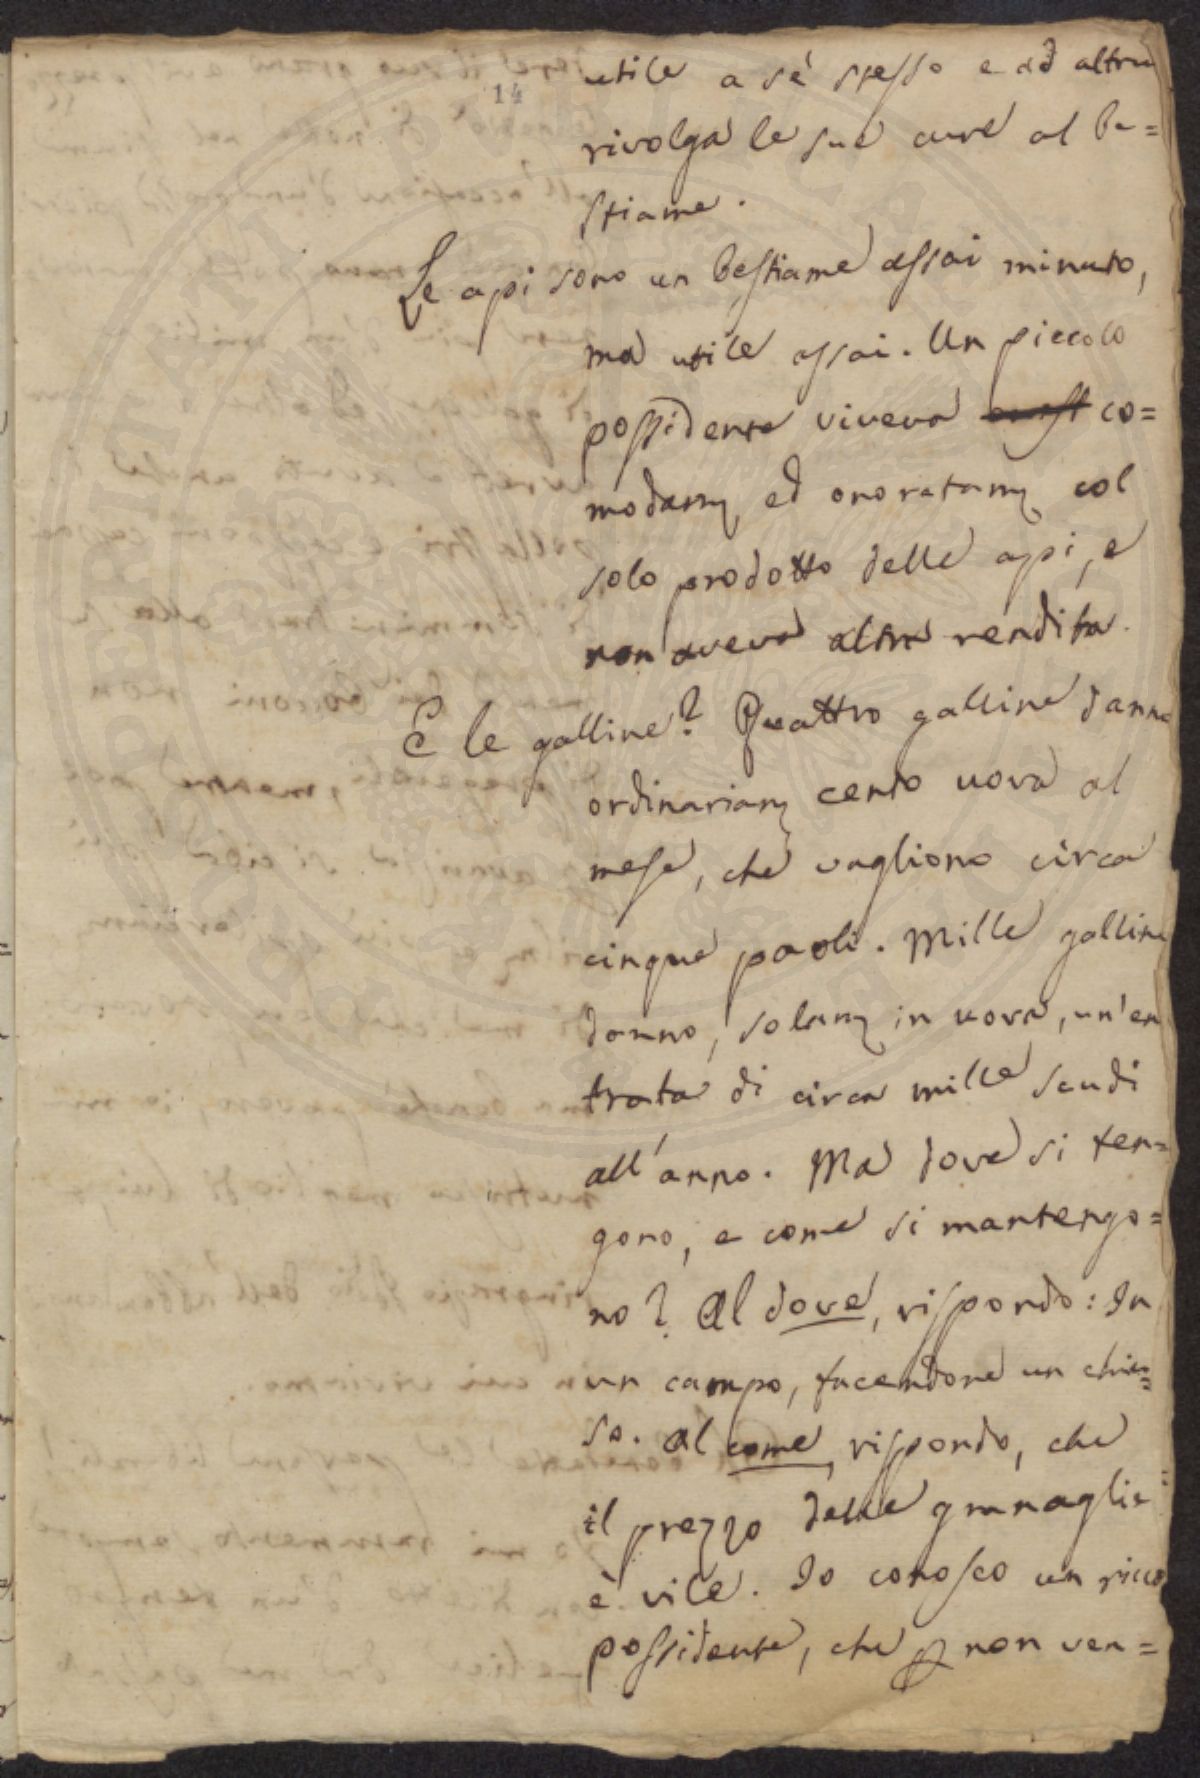 14
utile a sé stesso e ad altrui
rivolga le sue cure al be=
stiame.
Le api sono un bestiame assai minuto,
ma utile assai. Un piccolo
possidente viveva co=
modam̃ ed onoratam̃ col
solo prodotto delle api, e
non aveva altra rendita.
E le galline? Quattro galline danno
ordinariam̃ cento uova al
mese, che vagliono circa
cinque paoli. Mille galline
danno, solam̃ in uova, un'en
trata di circa mille scudi
all'anno. Ma dove si ten=
gono, e come si mantengo=
no? Al dove, rispondo: In
un campo, facendone un chiu=
so. Al come, rispondo, che
il prezzo delle granaglie
è vile. Io conosco un ricco
possidente, che non ven=